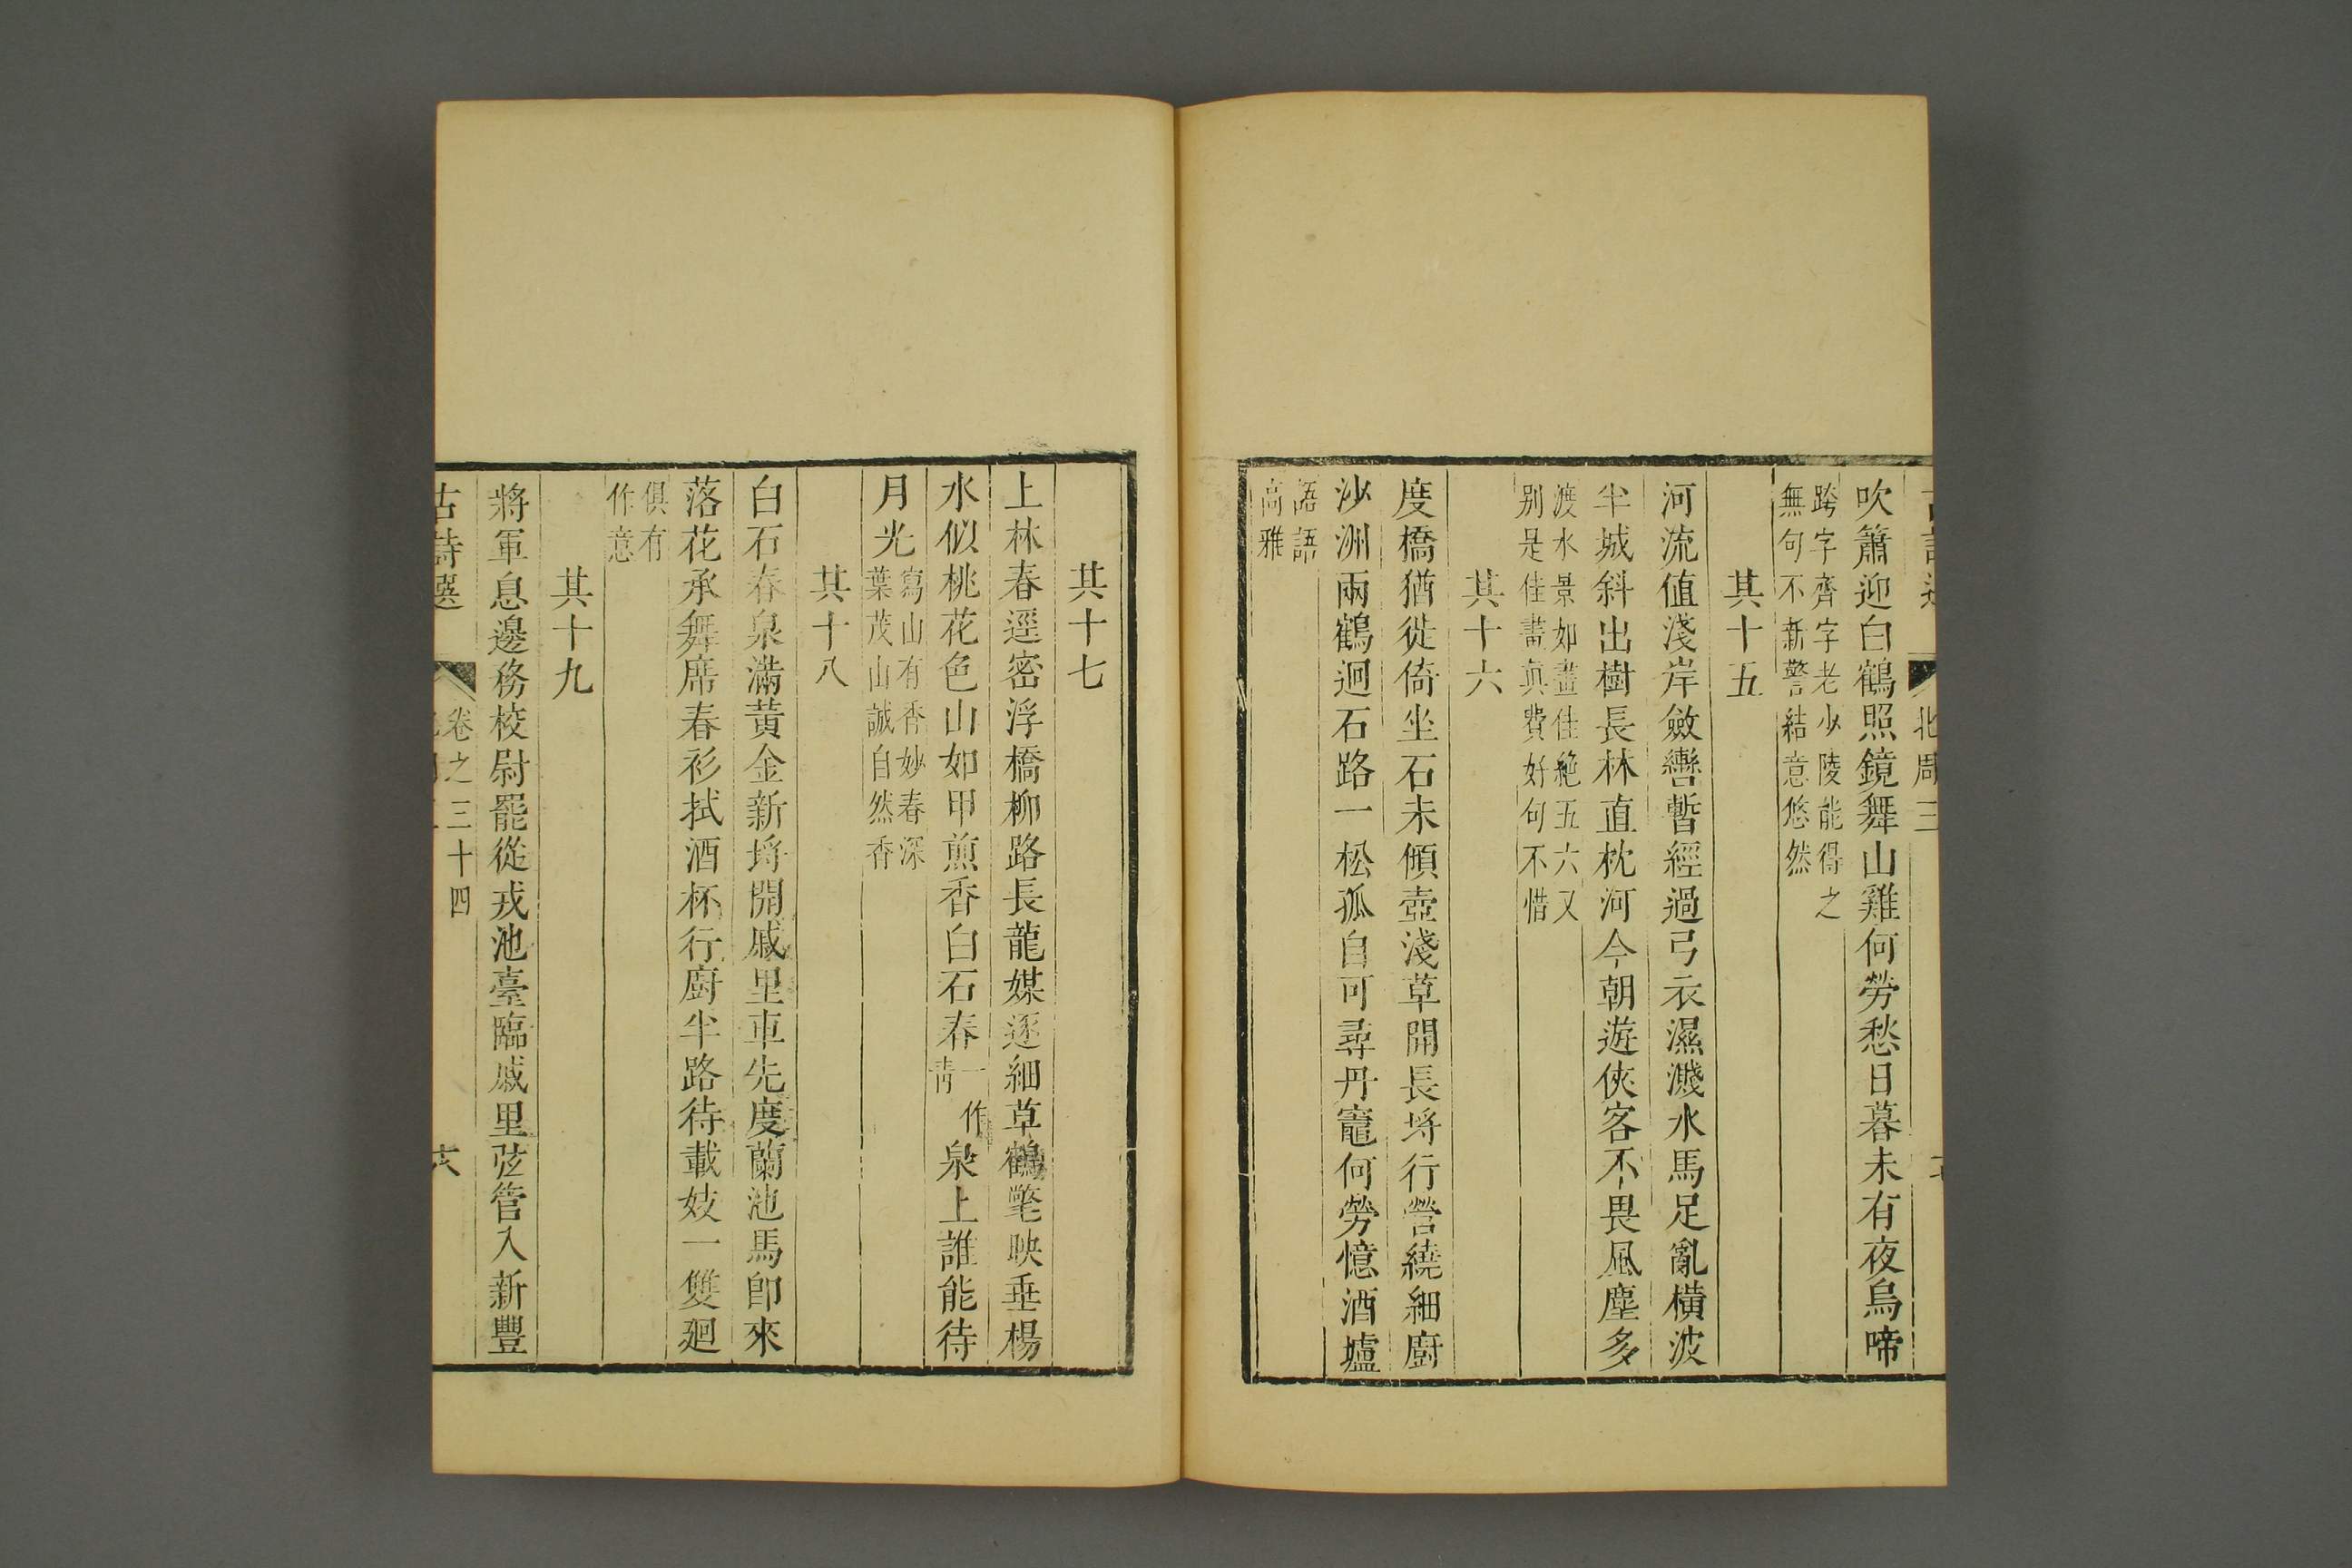 吹簫迎白鶴照鏡舞山雞何勞愁日暮未有夜烏啼
跨字齊字老少陵能得之
無句不新警結意悠然
其十五
河流值淺岸斂轡暫經過弓衣濕濺水馬足亂橫波
半城斜出樹長林直枕河今朝遊俠客不畏風塵多
渡水景如畫佳絶五六又
别是佳畵真費好句不惜
其十六
度橋猶徙倚坐石未傾壺淺草開長埓行營繞細廚
沙洲兩鶴迴石路一松孤自可尋丹竈何勞憶酒壚
語語
高雅
其十七
上林春逕密浮橋柳路長龍媒逐細草鶴氅映垂楊
水似桃花色山如甲煎香白石春一作靑泉上誰能待
月光
寫山有香妙春深
葉茂山誠自然香
其十八
白石春泉滿黃金新埓開戚里車先度蘭池馬卽來
落花承舞席春衫拭酒杯行廚半路待載妓一雙廻
俱有
作意
其十九
將軍息邊務校尉罷從戎池臺臨戚里弦管入新豐
古詩選
卷之三十四
北周三